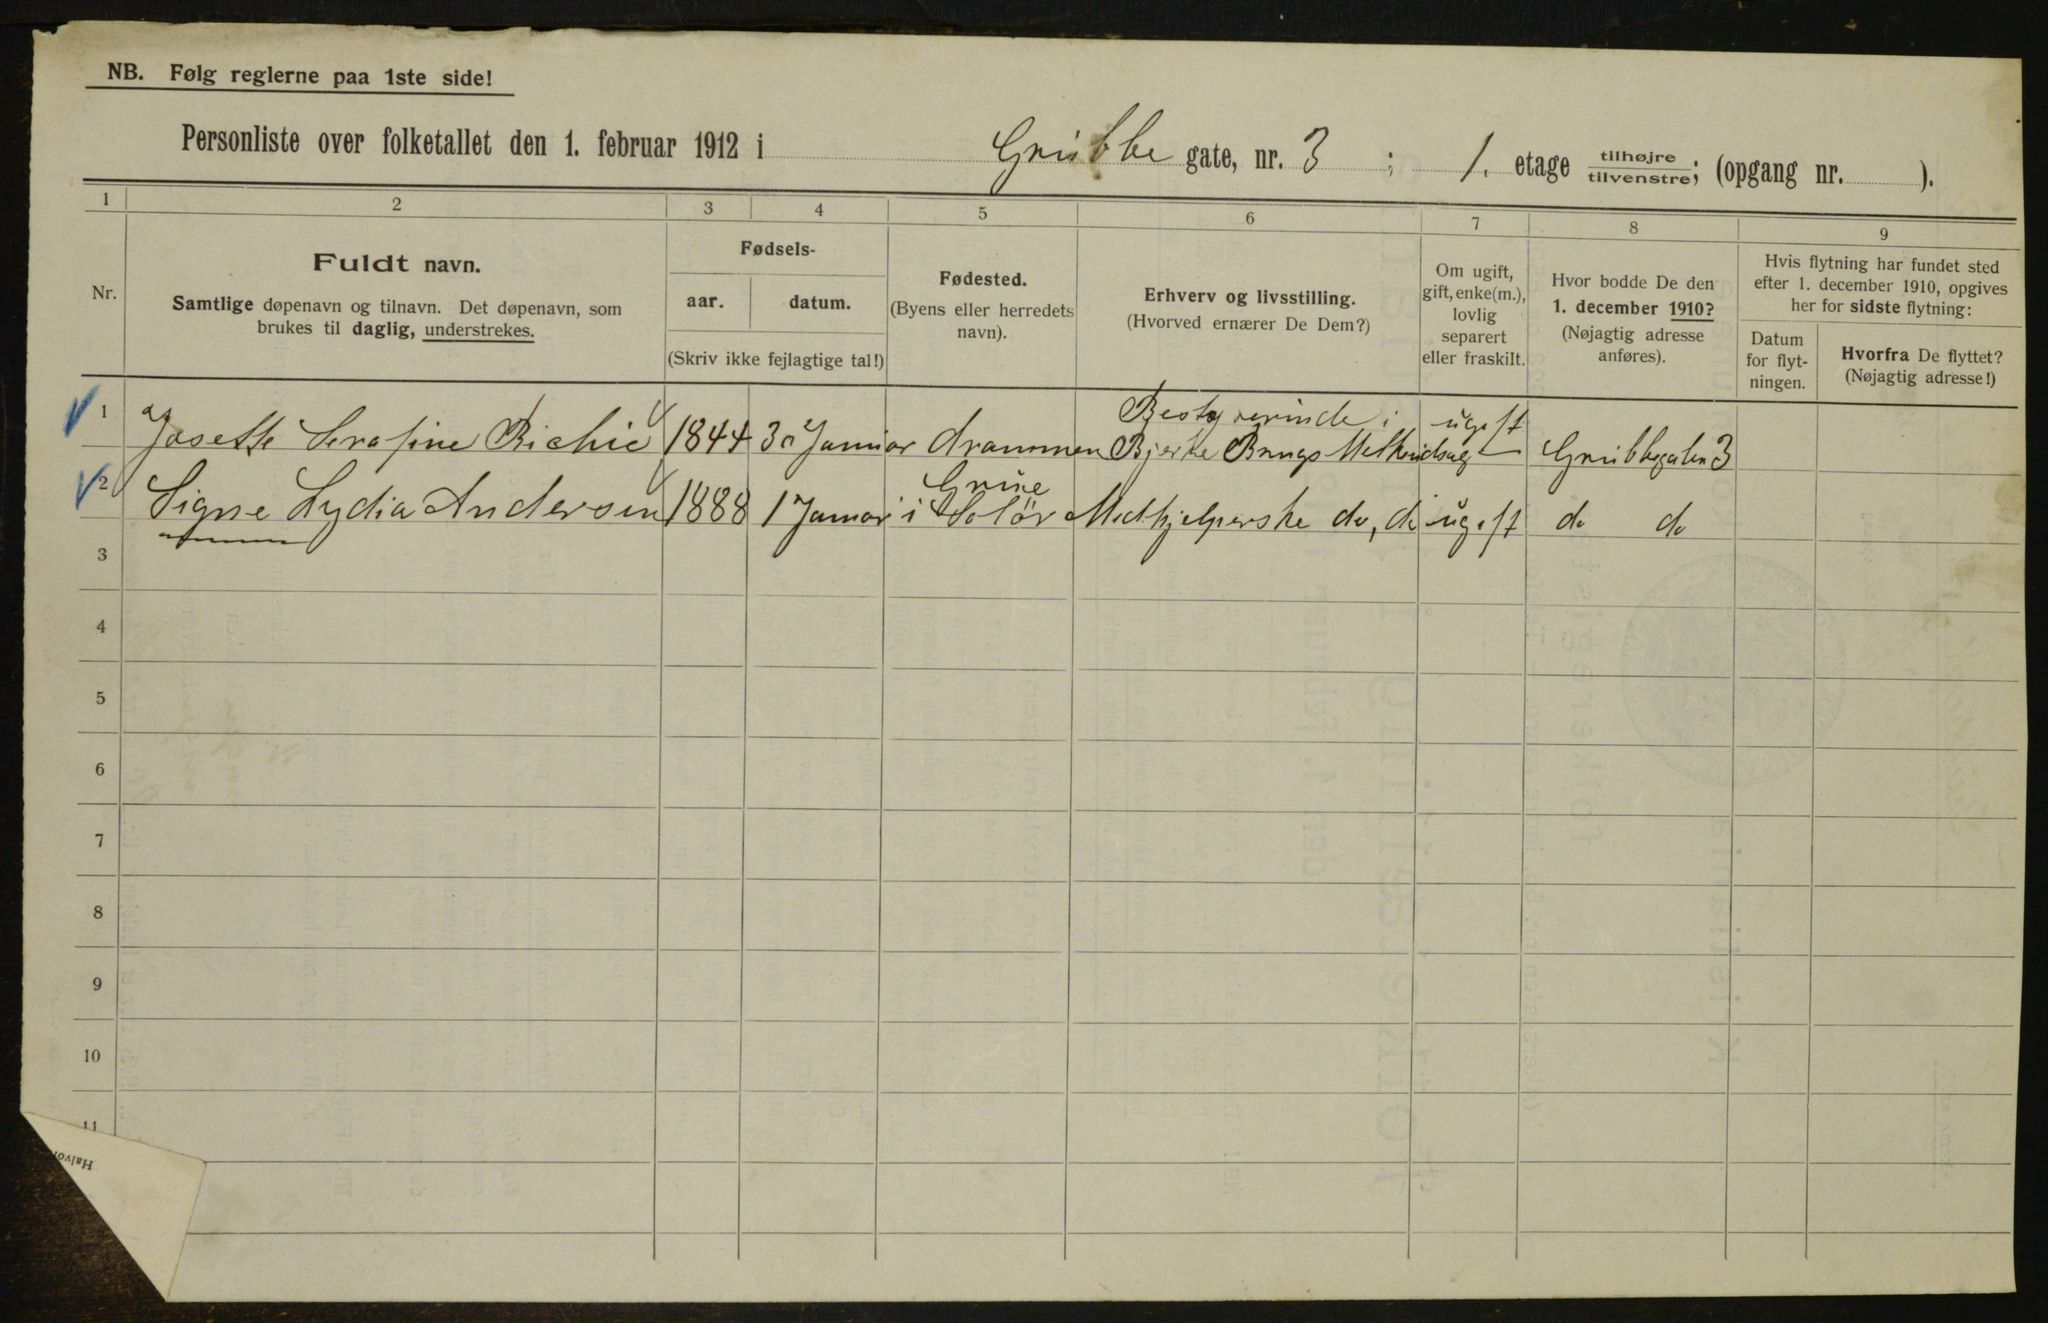 NB. Følg reglerne paa 1ste side!
Personliste over folketallet den 1. februar 1912 i Grubbe gate, nr. 3 ; 1. etage tilhøjre / tilvenstre; (opgang nr. ).
1 2 3 4 5 6 7 8 9
Nr.
Fuldt navn.
Samtlige døpenavn og tilnavn. Det døpenavn, som
brukes til daglig, understrekes.
Fødsels-
aar. datum.
(Skriv ikke fejlagtige tal!)
Fødested.
(Byens eller herredets
navn).
Erhverv og livsstilling.
(Hvorved ernærer De Dem?)
Om ugift,
gift, enke(m.),
lovlig
separert
eller fraskilt.
Hvor bodde De den
1. december 1910?
(Nøjagtig adresse
anføres).
Hvis flytning har fundet sted
efter 1. december 1910, opgives
her for sidste flytning:
Datum
for flyt-
ningen.
Hvorfra De flyttet?
(Nøjagtig adresse!)
1 Josette Serafine Richie 1844 30 Januar drammen Bestyrerinde i Bjerke Brugs Melkeudsalg ugift Grubbegaten 3
2 Signe Lydia Andersen 1888 1 Januar i Grue Solør Medhjelperske do, do ugift do do
3
4
5
6
7
8
9
10
11